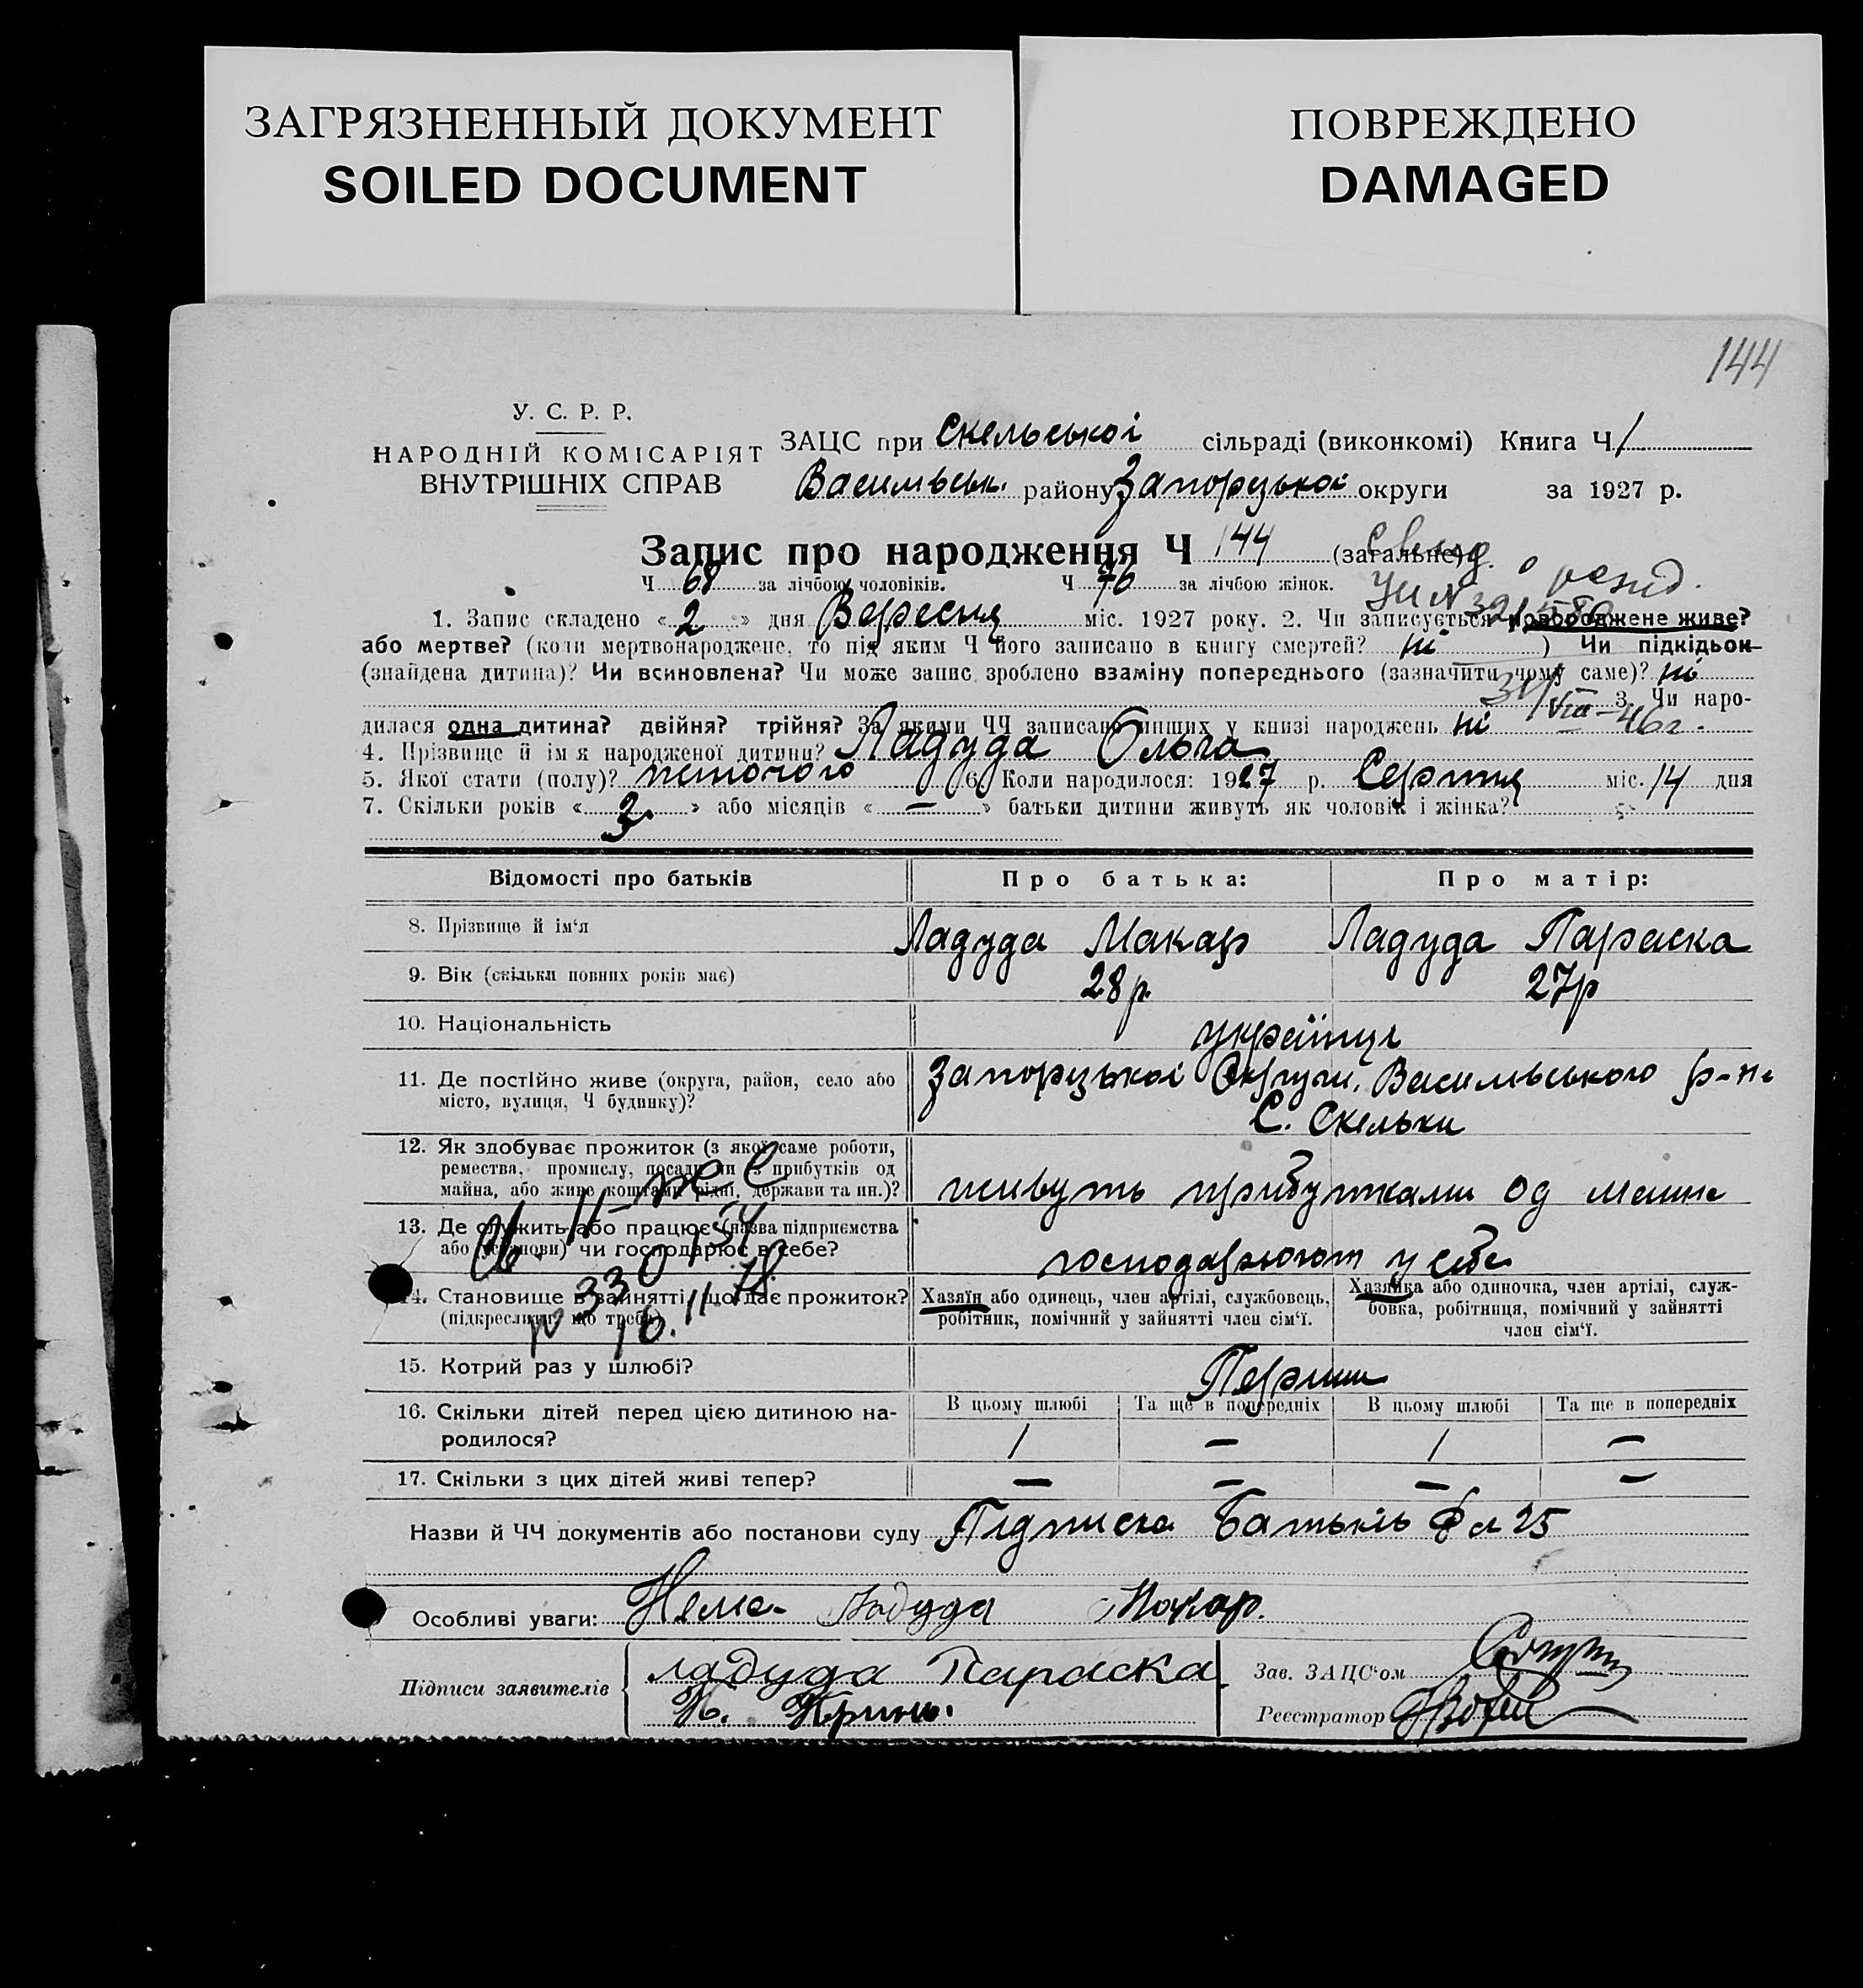 ЗАГРЯЗНЕННЫЙ ДОКУМЕНТ
SOILED DOCUMENT
ПОВРЕЖДЕНО
DAMAGED
144
У. С. Р. Р.
НАРОДНІЙ КОМІСАРІЯТ
ВНУТРІШНІХ СПРАВ
ЗАЦС при Скельської сільраді (виконкомі) Книга Ч 1
Васильвськ. району Запорізької округи за 1927 р.
Запис про народження Ч 144 (загальне)
Ч 68 за лічбою чоловіків. Ч 76 за лічбою жінок.
1. Запис складено «2» дня Вересня міс. 1927 року. 2. Чи записується новороджене живе?
або мертве? (коли мертвонароджене, то під яким Ч його записано в книгу смертей? ні ) Чи підкідьок
(знайдена дитина)? Чи всиновлена? Чи може запис зроблено взаміну попереднього (зазначити чому саме)? ні
31/VIII-46г.
3. Чи наро-
дилася одна дитина? двійня? трійня? За якими ЧЧ записано инших у книзі народжень ні
4. Прізвище й ім'я народженої дитини? Ладуда Ольга
5. Якої стати (полу)? жіночого 6. Коли народилося: 1927 р. Серпня міс. 14 дня
7. Скільки років «3» або місяців «—» батьки дитини живуть як чоловік і жінка?
Відомості про батьків
Про батька:
Про матір:
8. Прізвище й ім'я
Ладуда Макар
Ладуда Параска
9. Вік (скільки повних років має)
28 р.
27р
10. Національність
українці
11. Де постійно живе (округа, район, село або
місто, вулиця, Ч будинку)?
Запорізької Округи, Васильвського р-на
С. Скельки
12. Як здобуває прожиток (з якої саме роботи,
ремества, промислу, посади чи з прибутків од
майна, або живе коштами рідні, держави та ин.)?
живуть прибутками од майна
13. Де служить або працює (назва підприємства
або установи) чи господарює в себе?
господарюють у себе
14. Становище в зайнятті, що дає прожиток?
(підкреслити що треба)
Хазяїн або одинець, член артілі, службовець,
робітник, помічний у зайнятті член сім'ї.
Хазяйка або одиночка, член артілі, служ-
бовка, робітниця, помічний у зайнятті
член сім'ї.
15. Котрий раз у шлюбі?
Перший
16. Скільки дітей перед цією дитиною на-
родилося?
В цьому шлюбі
Та ще в попередніх
В цьому шлюбі
Та ще в попередніх
1 — 1 —
17. Скільки з цих дітей живі тепер?
— — — —
Назви й ЧЧ документів або постанови суду Підписка Батьків
Особливі уваги: Нема Ладуда Макар.
Підписи заявителів
ладуда Параска
Зав. ЗАЦС'ом
Реєстратор